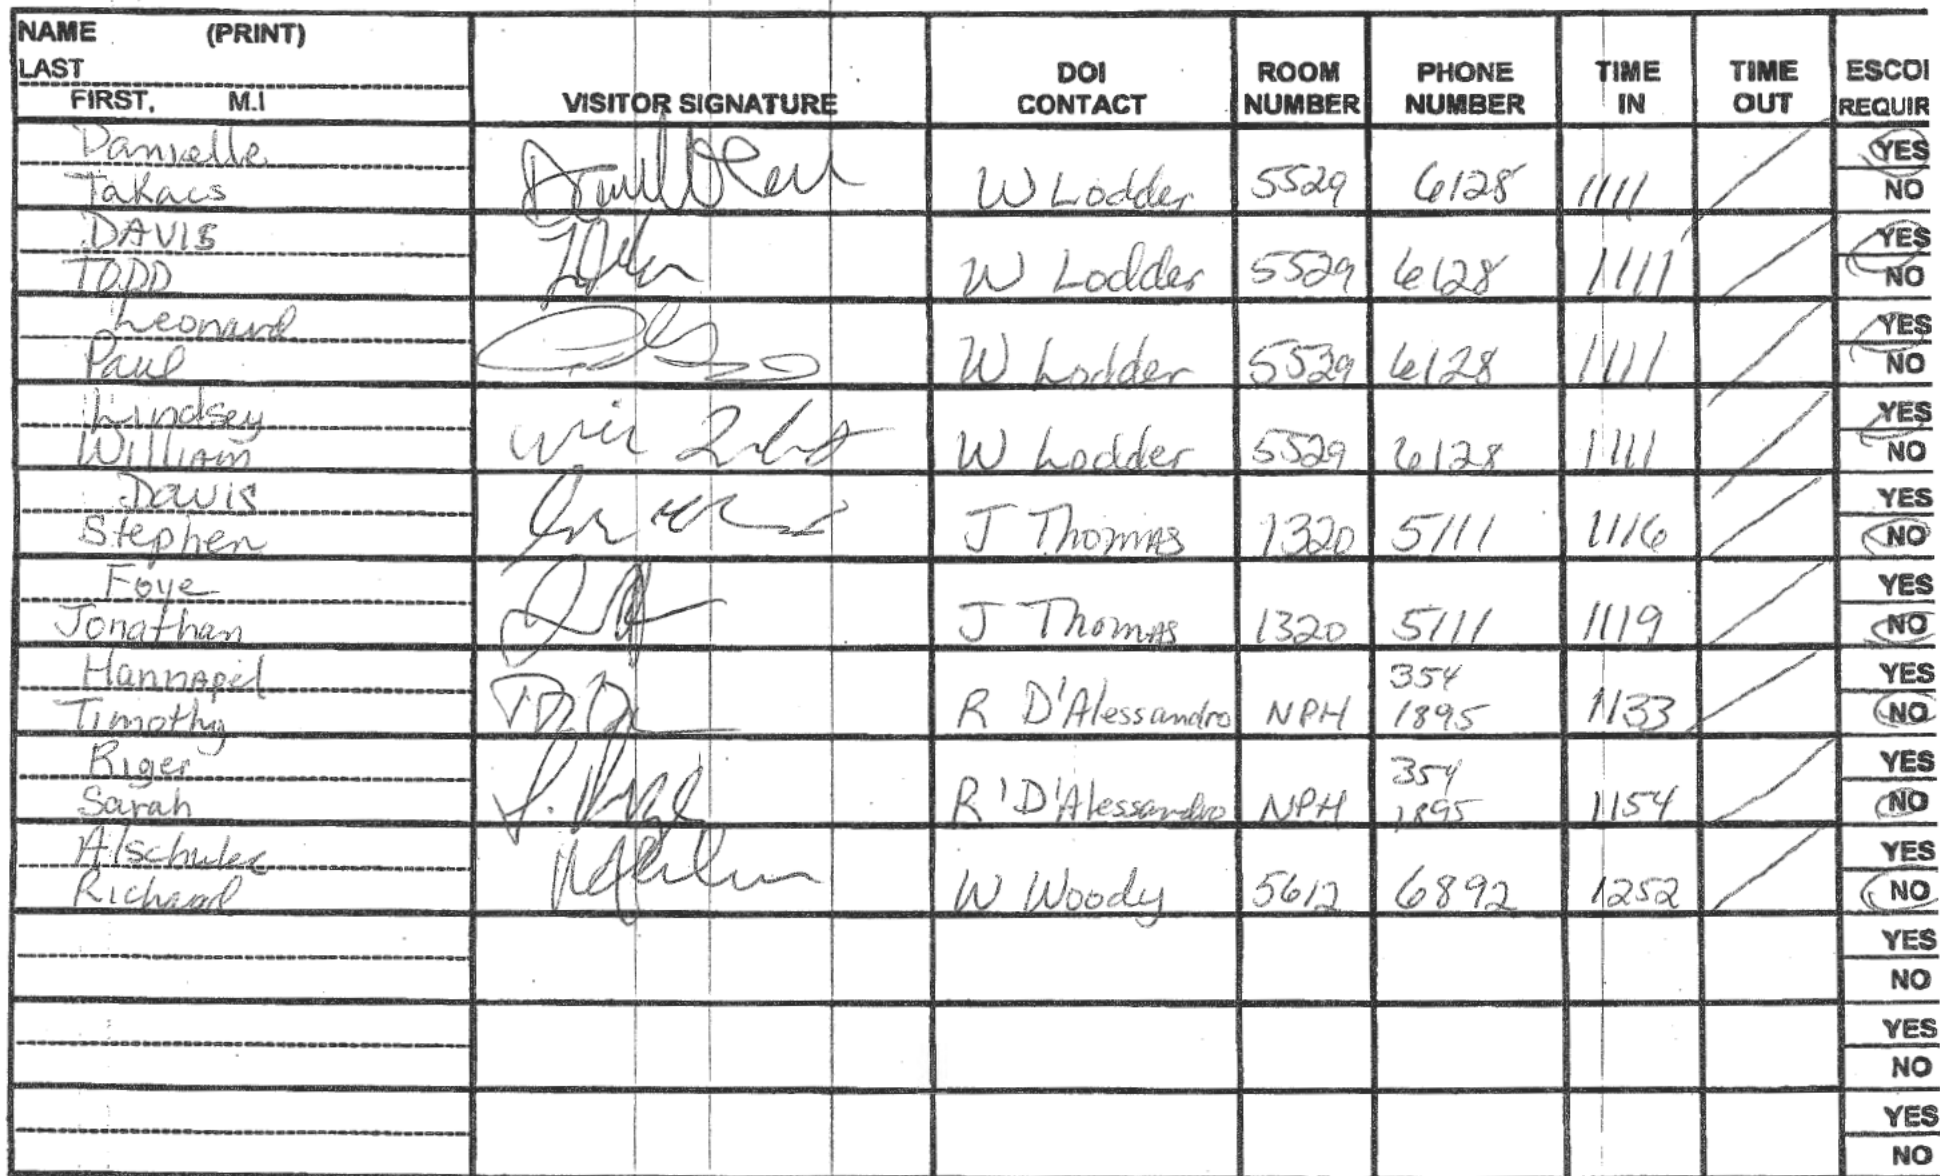 NAME (PRINT)
LAST
FIRST, M.I
VISITOR SIGNATURE
DOI CONTACT
ROOM NUMBER
PHONE NUMBER
TIME IN
TIME OUT
ESCOI
REQUIR
Danielle
Takacs W Lodder 5529 6128 1111 YES NO
DAVIS
TODD W Lodder 5529 6128 1111 YES NO
Leonard
Paul W Lodder 5529 6128 1111 YES NO
Lindsey
William W Lodder 5529 6128 1111 YES NO
Davis
Stephen J Thomas 1320 5111 1116 YES NO
Foye
Jonathan J Thomas 1320 5111 1119 YES NO
Hannapel 354
Timothy R D'Alessandro NPH 1895 1133 YES NO
Riger 354
Sarah R D'Alessandro NPH 1895 1154 YES NO
Alschuler
Richard W Woody 5612 6892 1252 YES NO
YES
NO
YES
NO
YES
NO